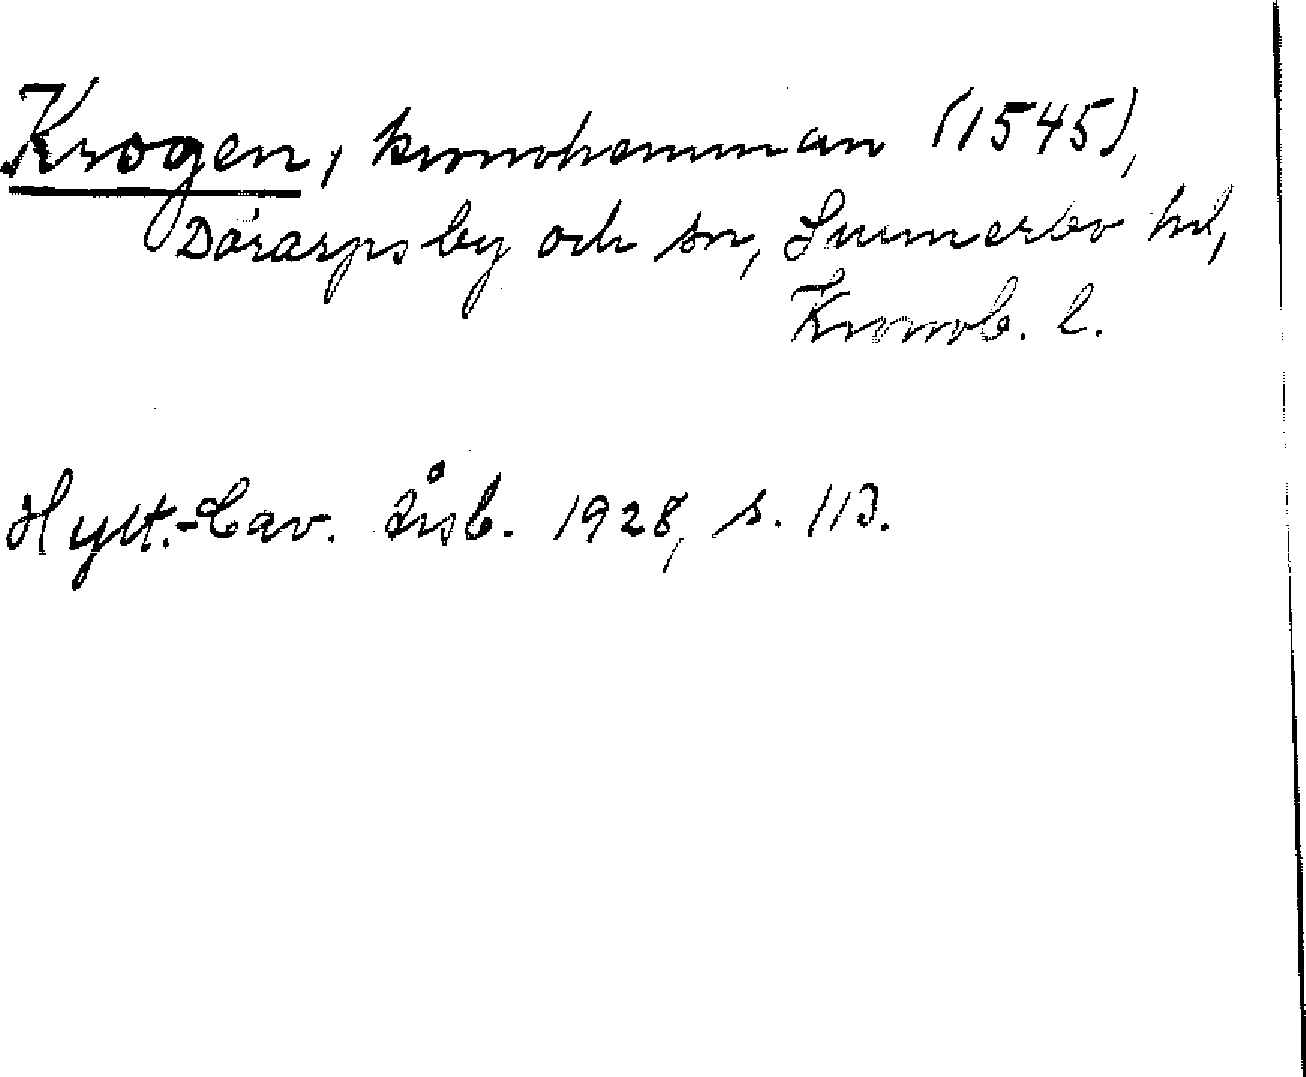 Krogen, kronohemman (1545),
Dörarps by och sn, Sunnerbo hd,
Kronob. l.
Hylt.-Cav. Årsb. 1928, s. 113.